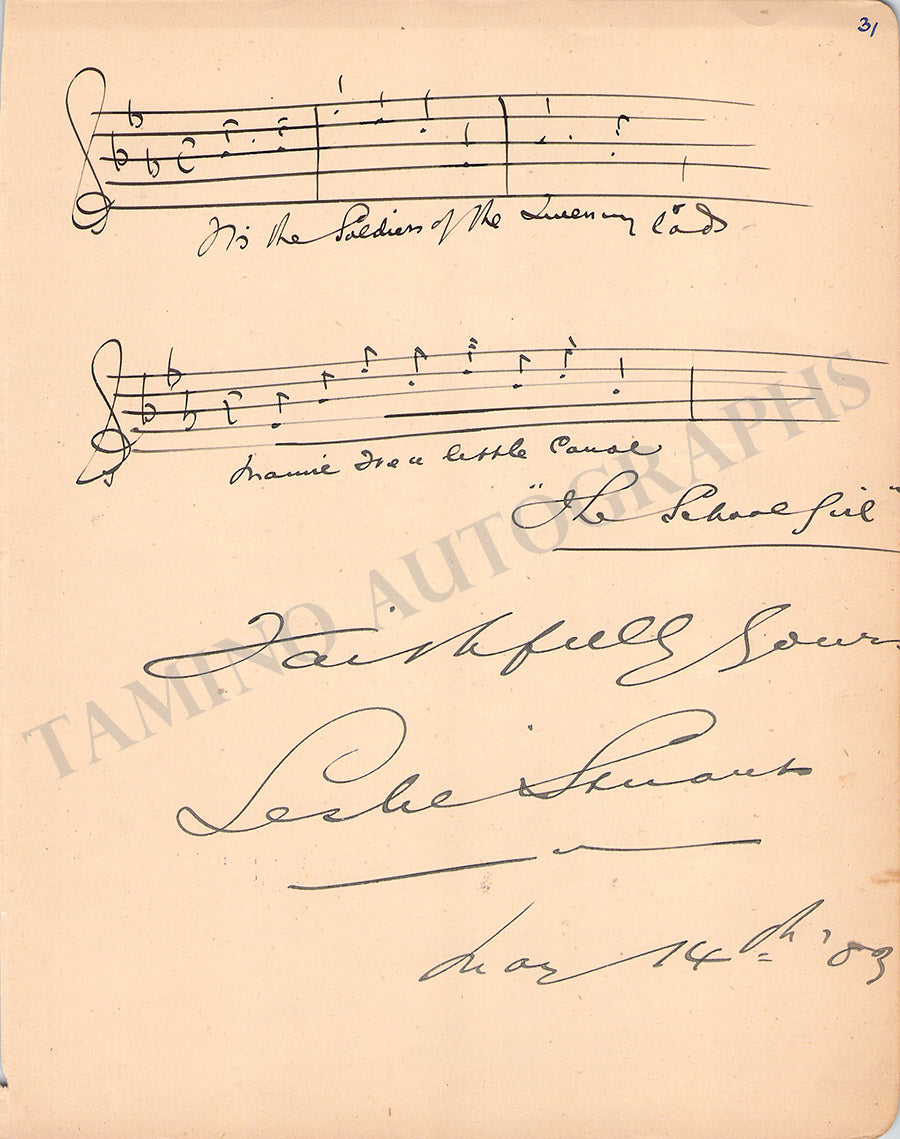 31
'Tis the Soldiers of the Queen my lads
Mamie I've a little Canoe
"The School Girl"
Faithfully Yours
Leslie Stuart
May 14th '03
TAMINO AUTOGRAPHS